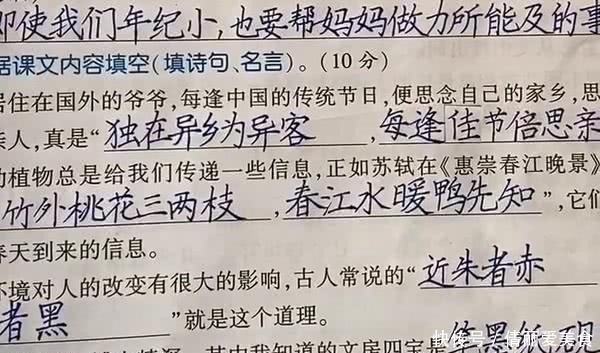 即使我们年纪小,也要帮妈妈做力所能及的事
居课文内容填空(填诗句、名言)。(10 分)
居住在国外的爷爷,每逢中国的传统节日,便思念自己的家乡,思
亲人,真是“独在异乡为异客,每逢佳节倍思亲
动植物总是给我们传递一些信息,正如苏轼在《惠崇春江晚景》
竹外桃花三两枝,春江水暖鸭先知”,它们
春天到来的信息。
环境对人的改变有很大的影响,古人常说的“近朱者赤
者黑”就是这个道理。
其中我知道的文房四宝是笔墨纸砚
快传号/倩丽爱美食